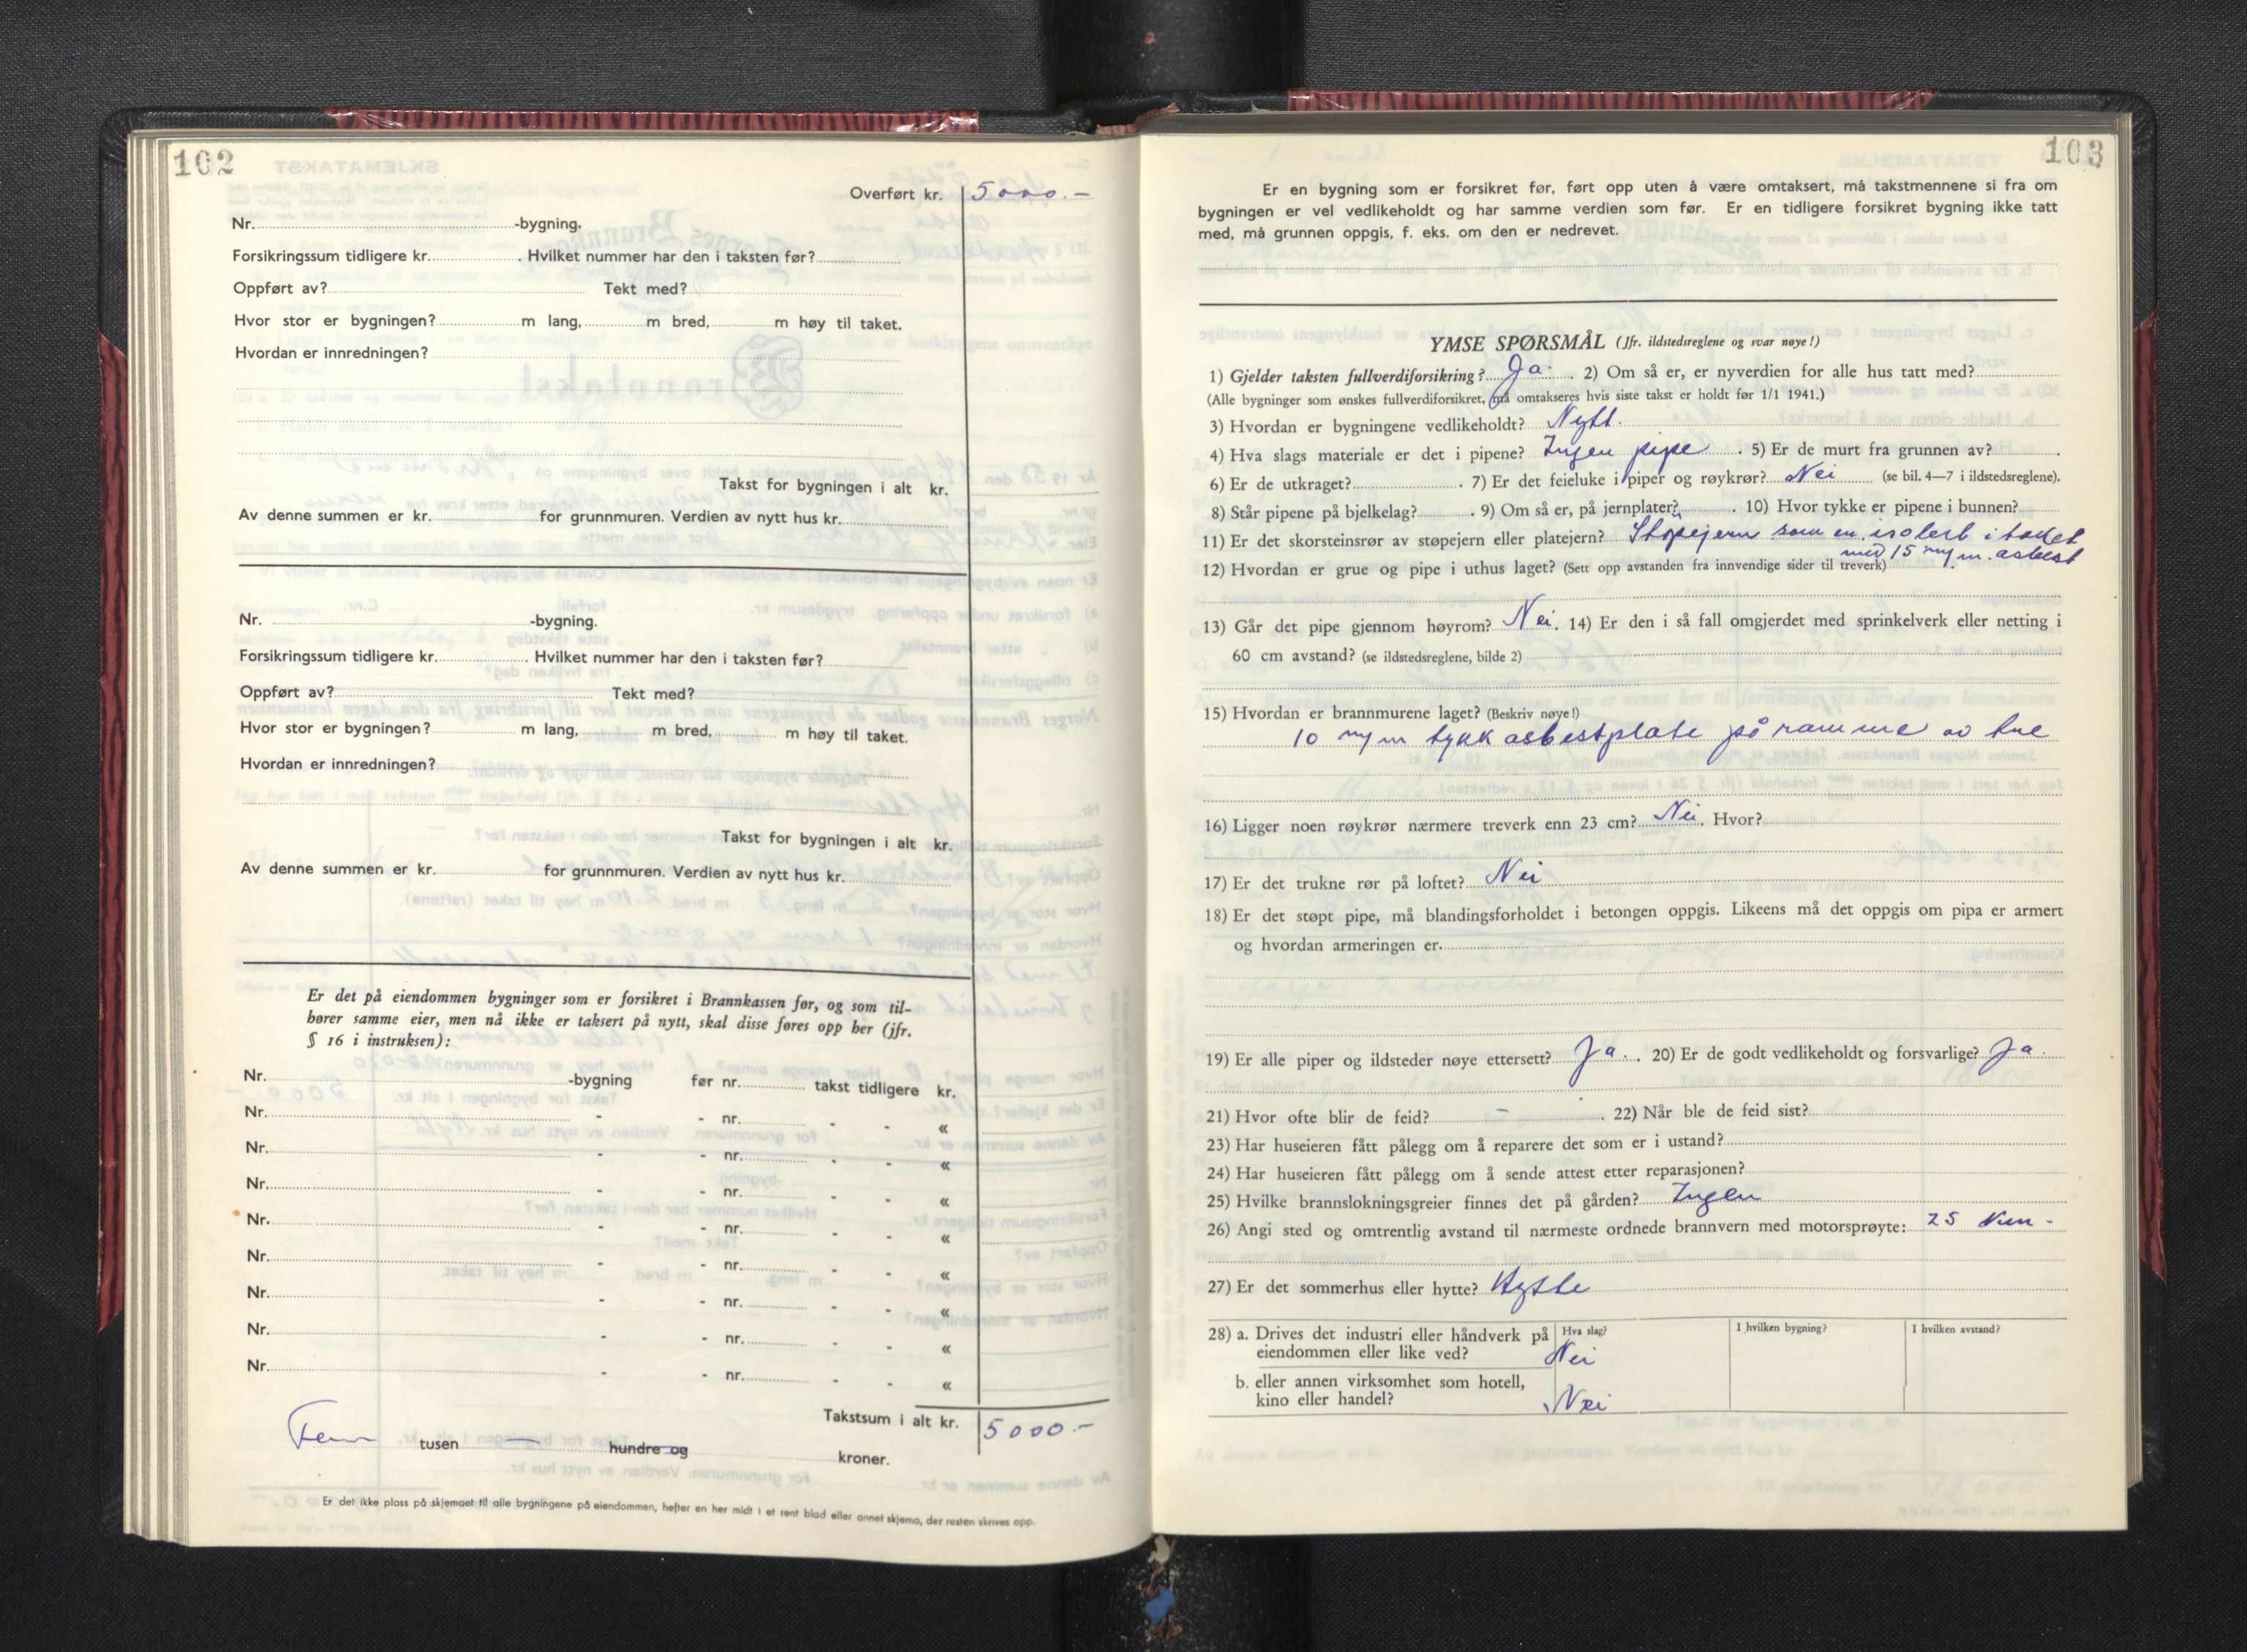 102
Overført kr. 5000.-
Nr. -bygning.
Forsikringssum tidligere kr. . Hvilket nummer har den i taksten før?
Oppført av? Tekt med?
Hvor stor er bygningen? m lang, m bred, m høy til taket.
Hvordan er innredningen?
Takst for bygningen i alt kr.
Av denne summen er kr. for grunnmuren. Verdien av nytt hus kr.
Nr. -bygning.
Forsikringssum tidligere kr. . Hvilket nummer har den i taksten før?
Oppført av? Tekt med?
Hvor stor er bygningen? m lang, m bred, m høy til taket.
Hvordan er innredningen?
Takst for bygningen i alt kr.
Av denne summen er kr. for grunnmuren. Verdien av nytt hus kr.
Er det på eiendommen bygninger som er forsikret i Brannkassen før, og som til-
hører samme eier, men nå ikke er taksert på nytt, skal disse føres opp her (jfr.
§ 16 i instruksen):
Nr. -bygning før nr. takst tidligere kr.
Nr. - - nr. - - «
Nr. - - nr. - - «
Nr. - - nr. - - «
Nr. - - nr. - - «
Nr. - - nr. - - «
Nr. - - nr. - - «
Nr. - - nr. - - «
Nr. - - nr. - - «
Takstsum i alt kr. 5000.-
Fem tusen — hundre og kroner.
Er det ikke plass på skjemaet til alle bygningene på eiendommen, hefter en her midt i et rent blad eller annet skjema, der resten skrives opp.
103
Er en bygning som er forsikret før, ført opp uten å være omtaksert, må takstmennene si fra om
bygningen er vel vedlikeholdt og har samme verdien som før. Er en tidligere forsikret bygning ikke tatt
med, må grunnen oppgis, f. eks. om den er nedrevet.
YMSE SPØRSMÅL (Jfr. ildstedsreglene og svar nøye!)
1) Gjelder taksten fullverdiforsikring? Ja. . 2) Om så er, er nyverdien for alle hus tatt med?
(Alle bygninger som ønskes fullverdiforsikret, må omtakseres hvis siste takst er holdt før 1/1 1941.)
3) Hvordan er bygningene vedlikeholdt? Nytt.
4) Hva slags materiale er det i pipene? Ingen pipe . 5) Er de murt fra grunnen av? .
6) Er de utkraget? . 7) Er det feieluke i piper og røykrør? Nei (se bil. 4—7 i ildstedsreglene).
8) Står pipene på bjelkelag? . 9) Om så er, på jernplater? . 10) Hvor tykke er pipene i bunnen?
11) Er det skorsteinsrør av støpejern eller platejern? Støpejern som en isolert i tadet
med 15 m/m. asbest
12) Hvordan er grue og pipe i uthus laget? (Sett opp avstanden fra innvendige sider til treverk) .
13) Går det pipe gjennom høyrom? Nei. 14) Er den i så fall omgjerdet med sprinkelverk eller netting i
60 cm avstand? (se ildstedsreglene, bilde 2)
15) Hvordan er brannmurene laget? (Beskriv nøye!)
10 m/m tykk asbestplate på ramme av tre
16) Ligger noen røykrør nærmere treverk enn 23 cm? Nei. Hvor?
17) Er det trukne rør på loftet? Nei
18) Er det støpt pipe, må blandingsforholdet i betongen oppgis. Likeens må det oppgis om pipa er armert
og hvordan armeringen er.
19) Er alle piper og ildsteder nøye ettersett? Ja. . 20) Er de godt vedlikeholdt og forsvarlige? Ja.
21) Hvor ofte blir de feid? - . 22) Når ble de feid sist?
23) Har huseieren fått pålegg om å reparere det som er i ustand?
24) Har huseieren fått pålegg om å sende attest etter reparasjonen?
25) Hvilke brannslokningsgreier finnes det på gården? Ingen
26) Angi sted og omtrentlig avstand til nærmeste ordnede brannvern med motorsprøyte: 25 km-
27) Er det sommerhus eller hytte? Hytte
28) a. Drives det industri eller håndverk på Hva slag? I hvilken bygning? I hvilken avstand?
eiendommen eller like ved? Nei
b. eller annen virksomhet som hotell,
kino eller handel? Nei